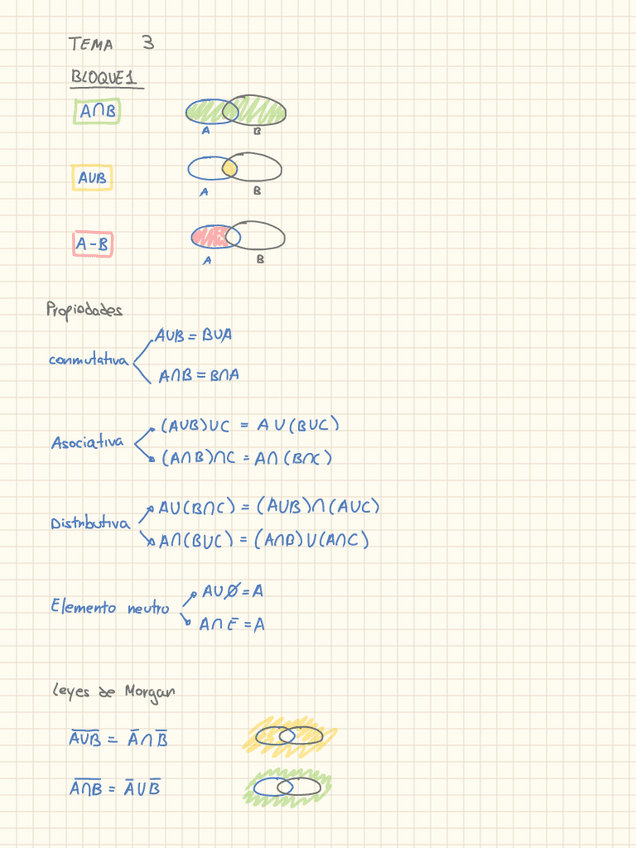 TEMA 3
BLOQUE1
A∩B
A B
AUB
A B
A-B
A B
Propiedades
conmutativa
AUB = BUA
A∩B = B∩A
Asociativa
(AUB)UC = AU(BUC)
(A∩B)∩C = A∩(B∩C)
Distributiva
AU(B∩C) = (AUB)∩(AUC)
A∩(BUC) = (A∩B)U(A∩C)
Elemento neutro
AUØ = A
A∩E = A
Leyes de Morgan
A̅U̅B̅ = A̅ ∩ B̅
A̅∩̅B̅ = A̅ U B̅